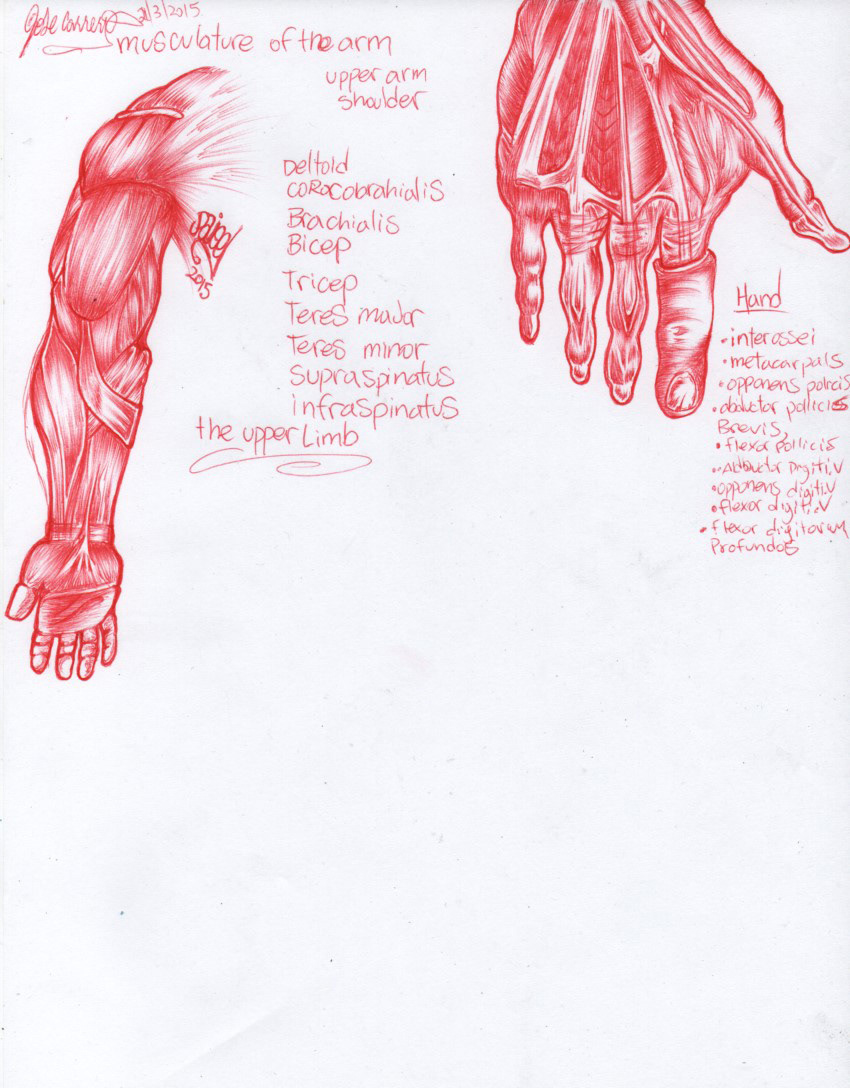 Jose Correa 2/3/2015
musculature of the arm
upper arm
shoulder
Deltoid
coracobrahialis
Brachialis
Bicep
Tricep
Teres major
Teres minor
supraspinatus
infraspinatus
the upper Limb
2015
Hand
• interossei
• metacarpals
• opponens
• abductor pollicis
Brevis,
• flexor pollicis
• Adbuctor Digiti.V
• opponens digiti.V
• flexor digiti.V
• flexor digitorum
Profundos